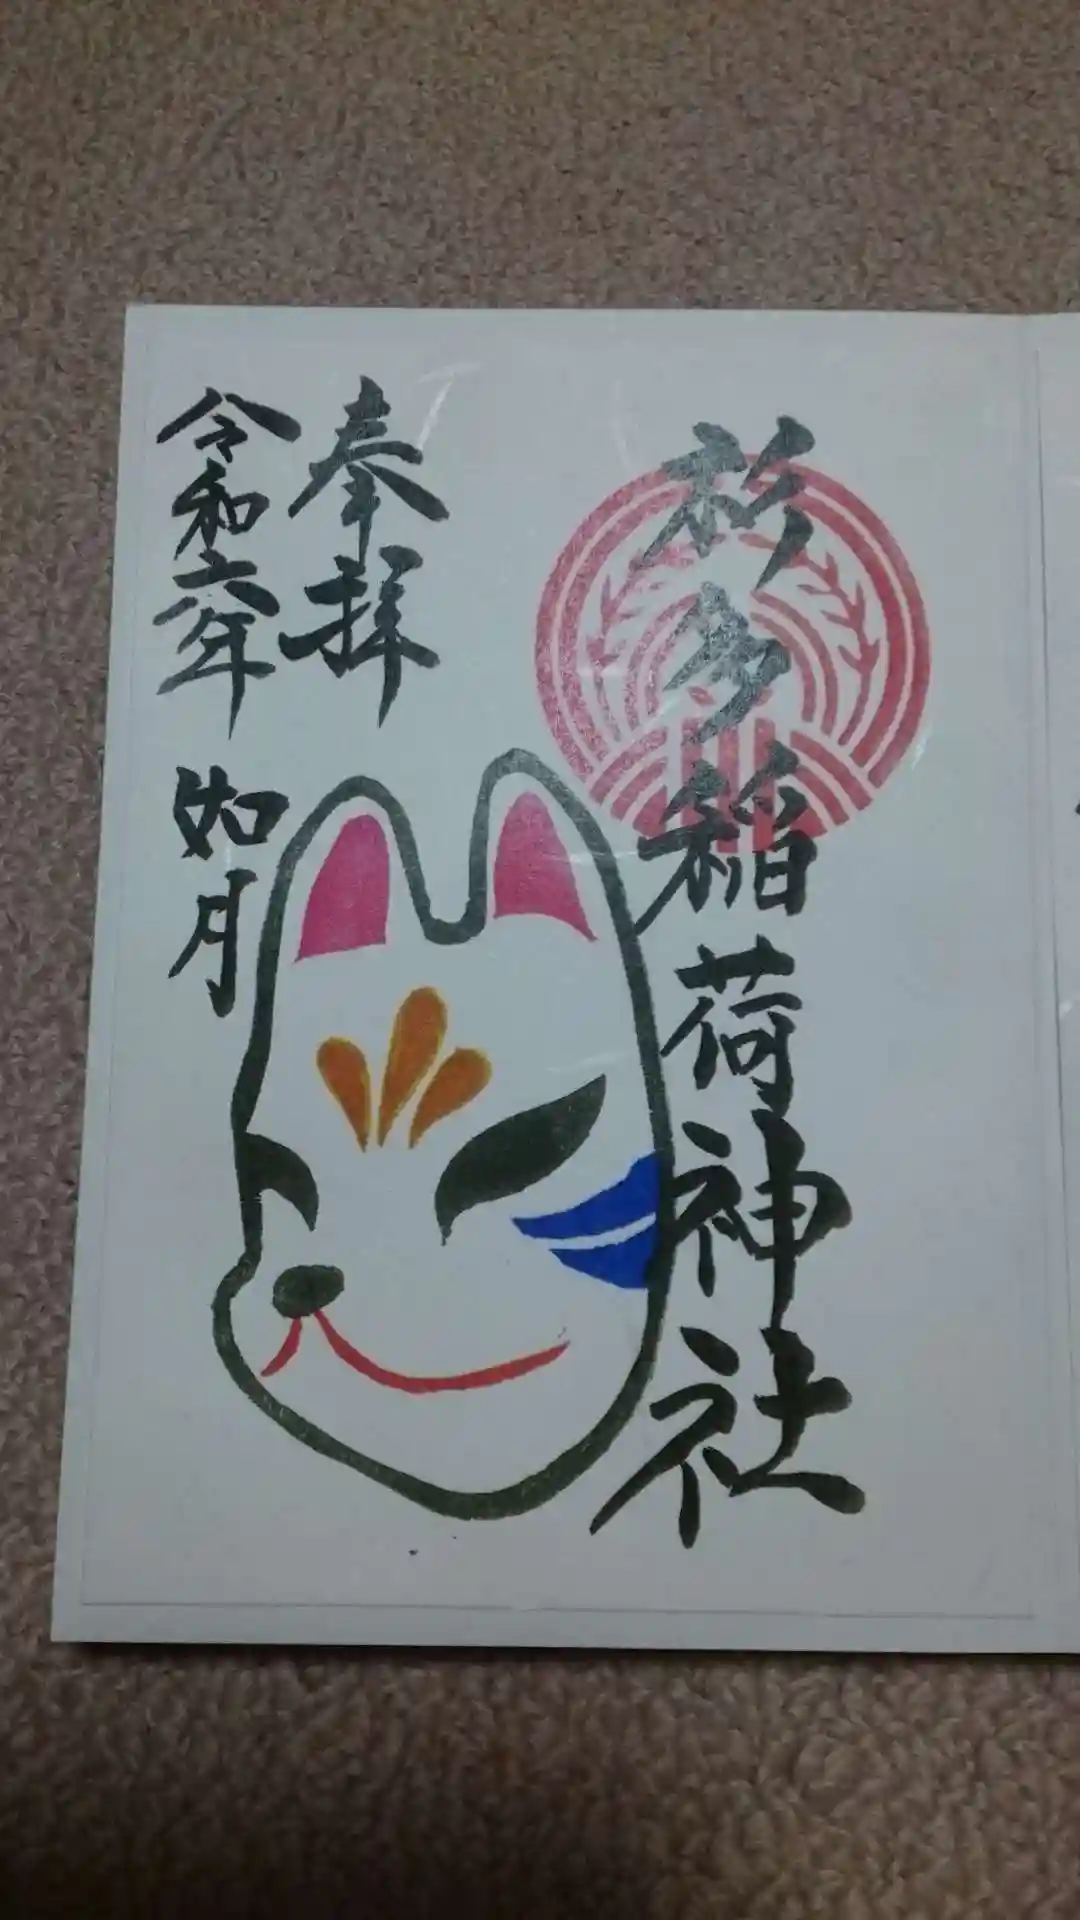 杉多稲荷神社
奉拝
令和六年 如月